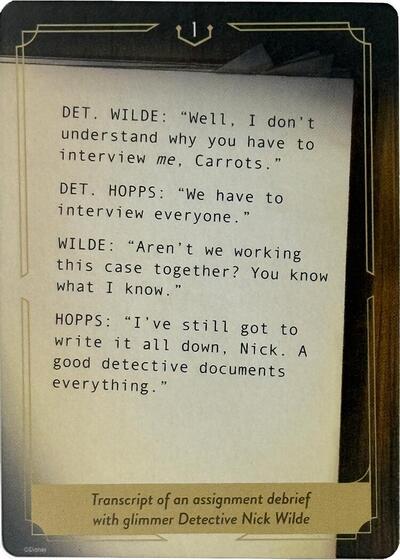 1
DET. WILDE: “Well, I don’t
understand why you have to
interview me, Carrots.”
DET. HOPPS: “We have to
interview everyone.”
WILDE: “Aren’t we working
this case together? You know
what I know.”
HOPPS: “I’ve still got to
write it all down, Nick. A
good detective documents
everything.”
Transcript of an assignment debrief
with glimmer Detective Nick Wilde
©Disney